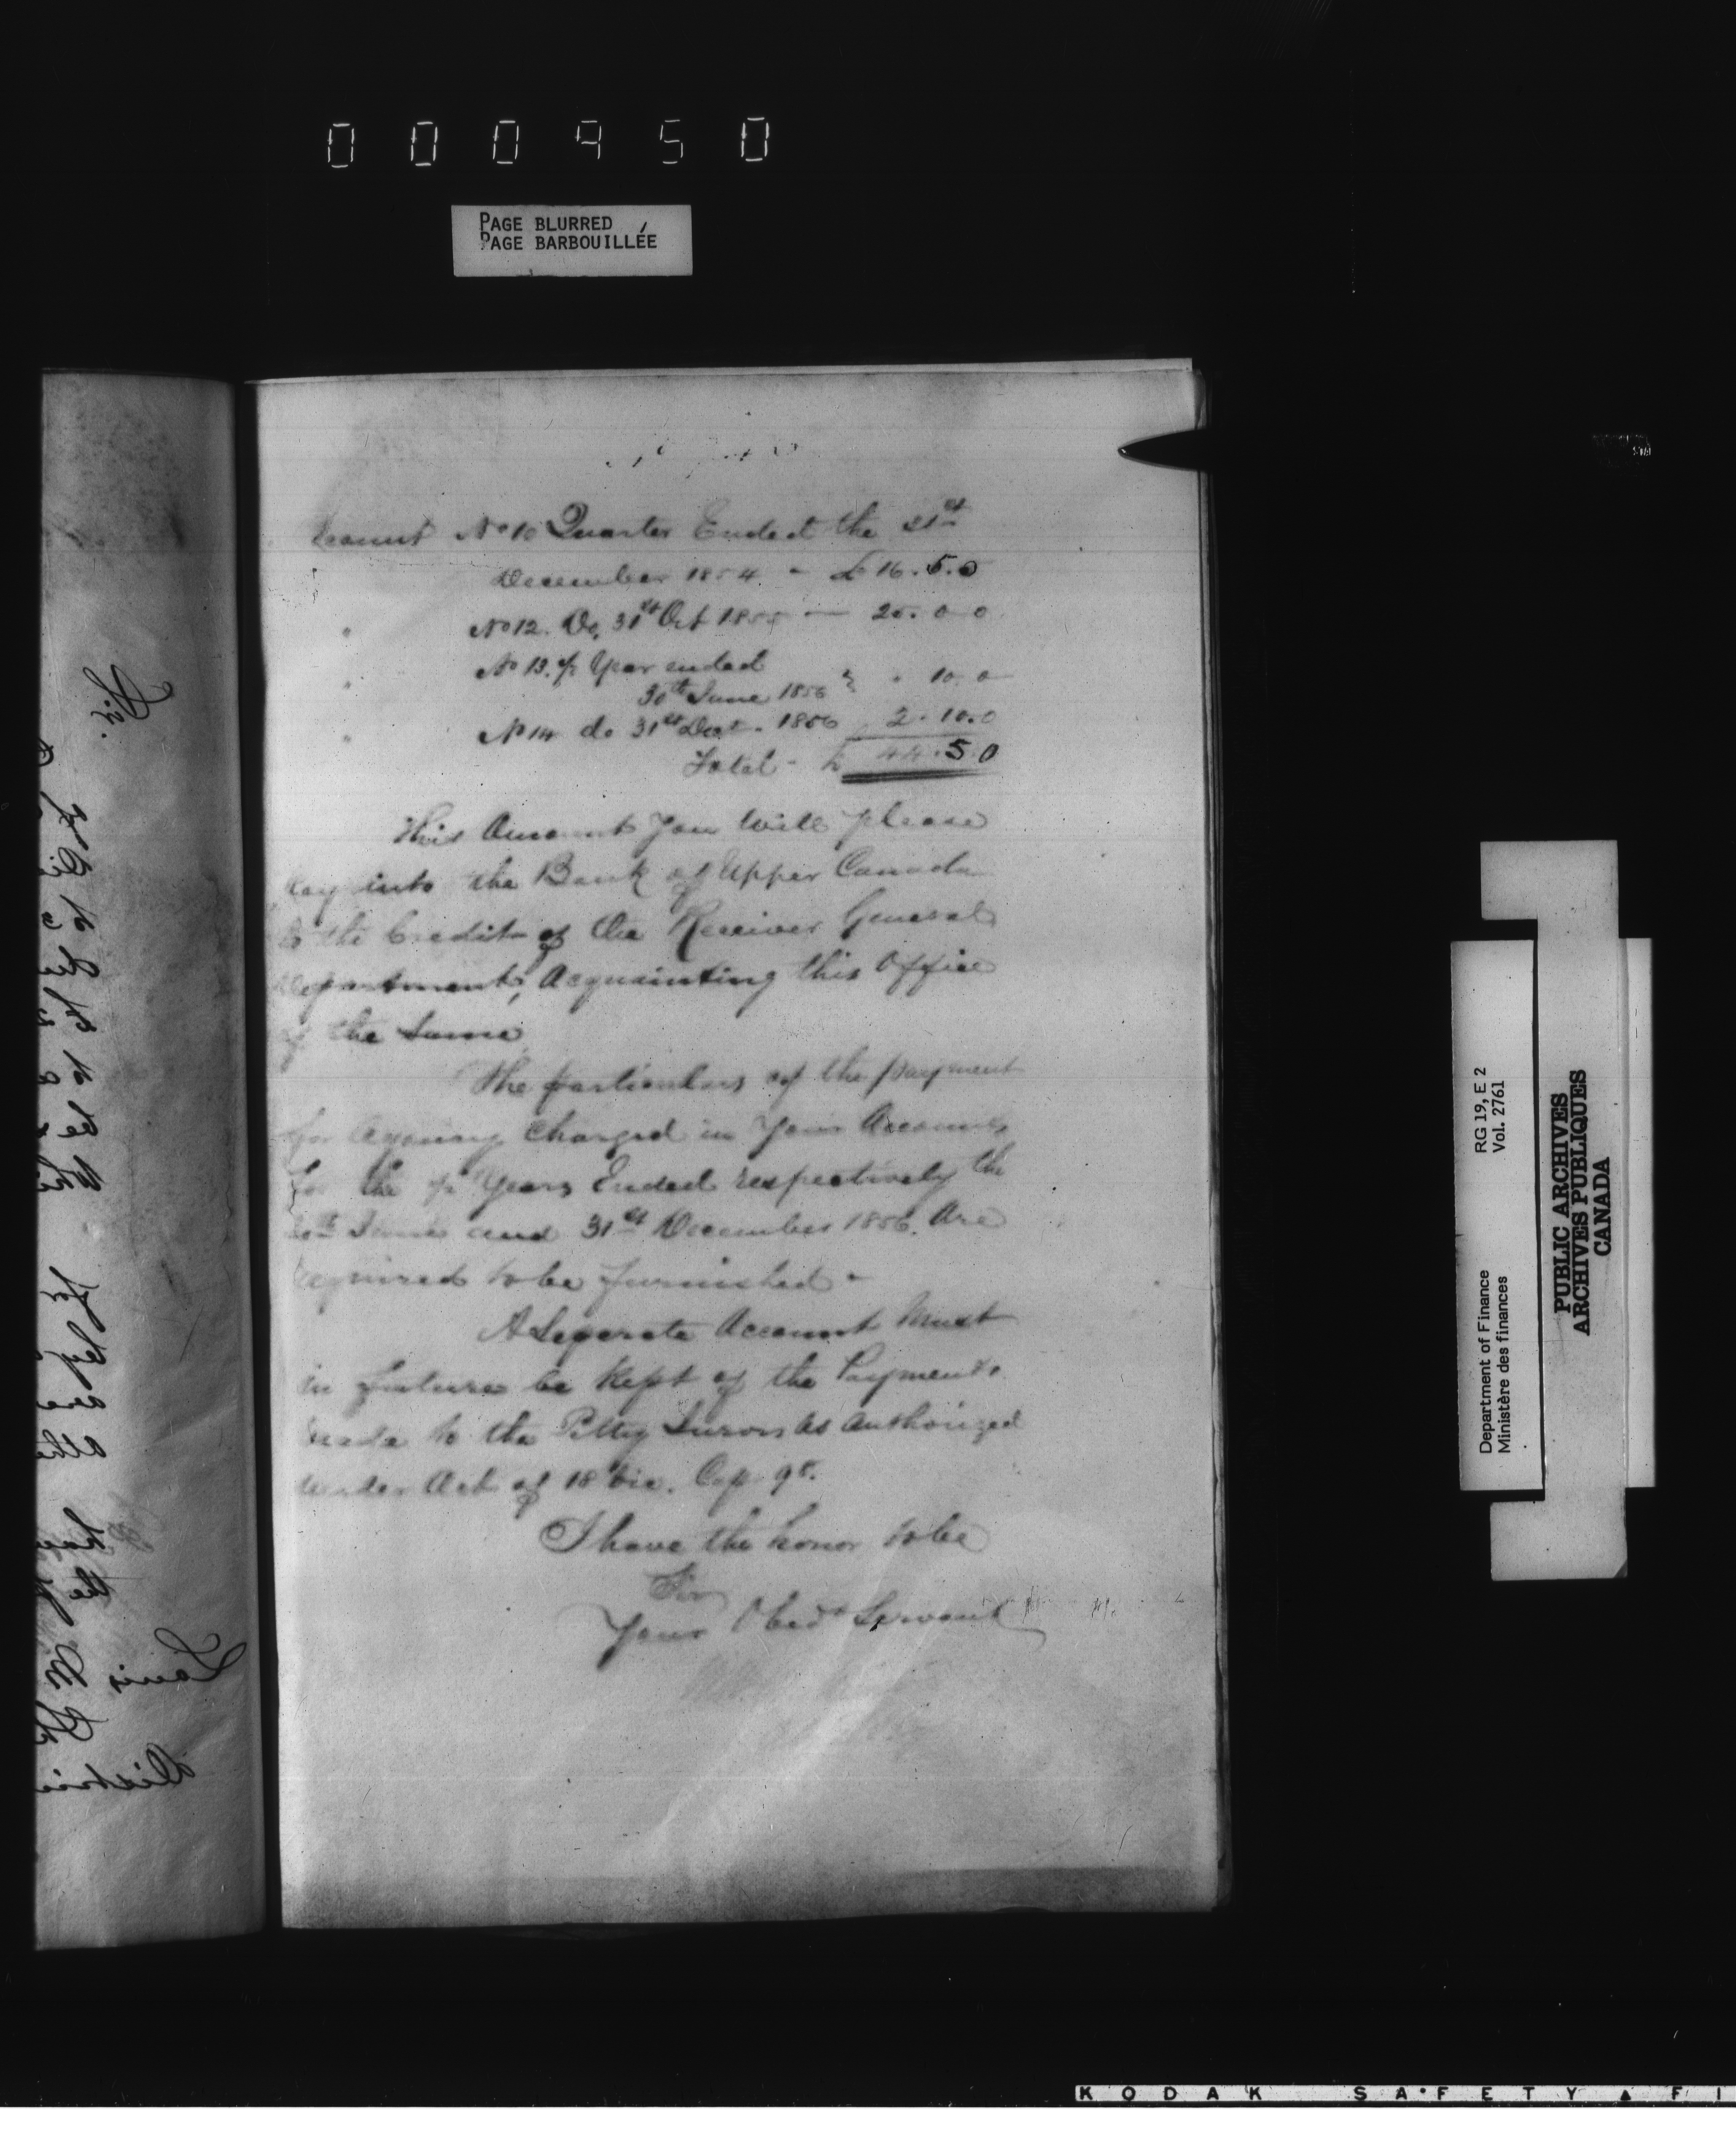 000950
PAGE BLURRED
PAGE BARBOUILLÉE
No 10 Quarter Ended the 31st
December 1854 - £16.5.0
" No 12. Do, 31st Oct 1855 — 25.0 0
" No 13. ½ Year ended
30th June 1856 } " 10.0
" No 14 do 31st Dec. 1856 2.10.0
Total - £ 44.5.0
This Amount You Will please
pay into the Bank of Upper Canada
to the Credit of the Receiver General
department, Acquainting this Office
of the Same,
The particulars of the payment
for Agency Charged in Your Accounts
for the ½ Years Ended respectively the
30th June and 31st December 1856. Are
required to be furnished -
A Seperate Account Must
in future be Kept of the Payments
made to the Petty Jurors As Authorized
under Act of 18 Vic. Cap 9
I have the honor to be
Sir
Your Obedt Servant
Sir.
Louis
Department of Finance
Ministère des finances
RG 19, E 2
Vol. 2761
PUBLIC ARCHIVES
ARCHIVES PUBLIQUES
CANADA
KODAK SAFETY ▲ FI